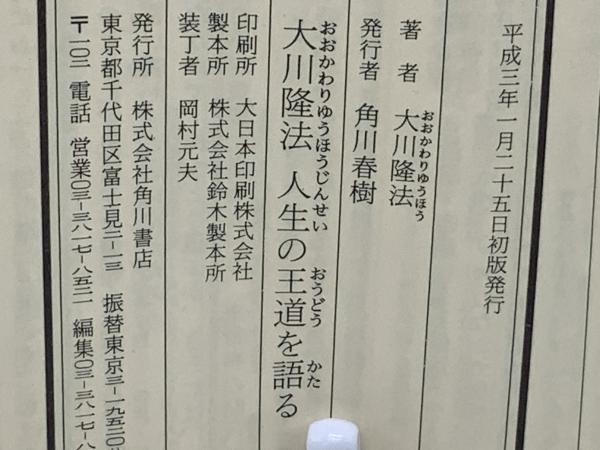 平成三年一月二十五日初版発行
著者 大川隆法
おおかわりゅうほう
発行者 角川春樹
大川隆法 人生の王道を語る
おおかわりゅうほうじんせい おうどう かた
印刷所 大日本印刷株式会社
製本所 株式会社鈴木製本所
装丁者 岡村元夫
発行所 株式会社角川書店
東京都千代田区富士見二-一三 振替東京三-一九五二〇八
〒一〇二 電話 営業〇三-三八一七-八五二一 編集〇三-三八一七-八